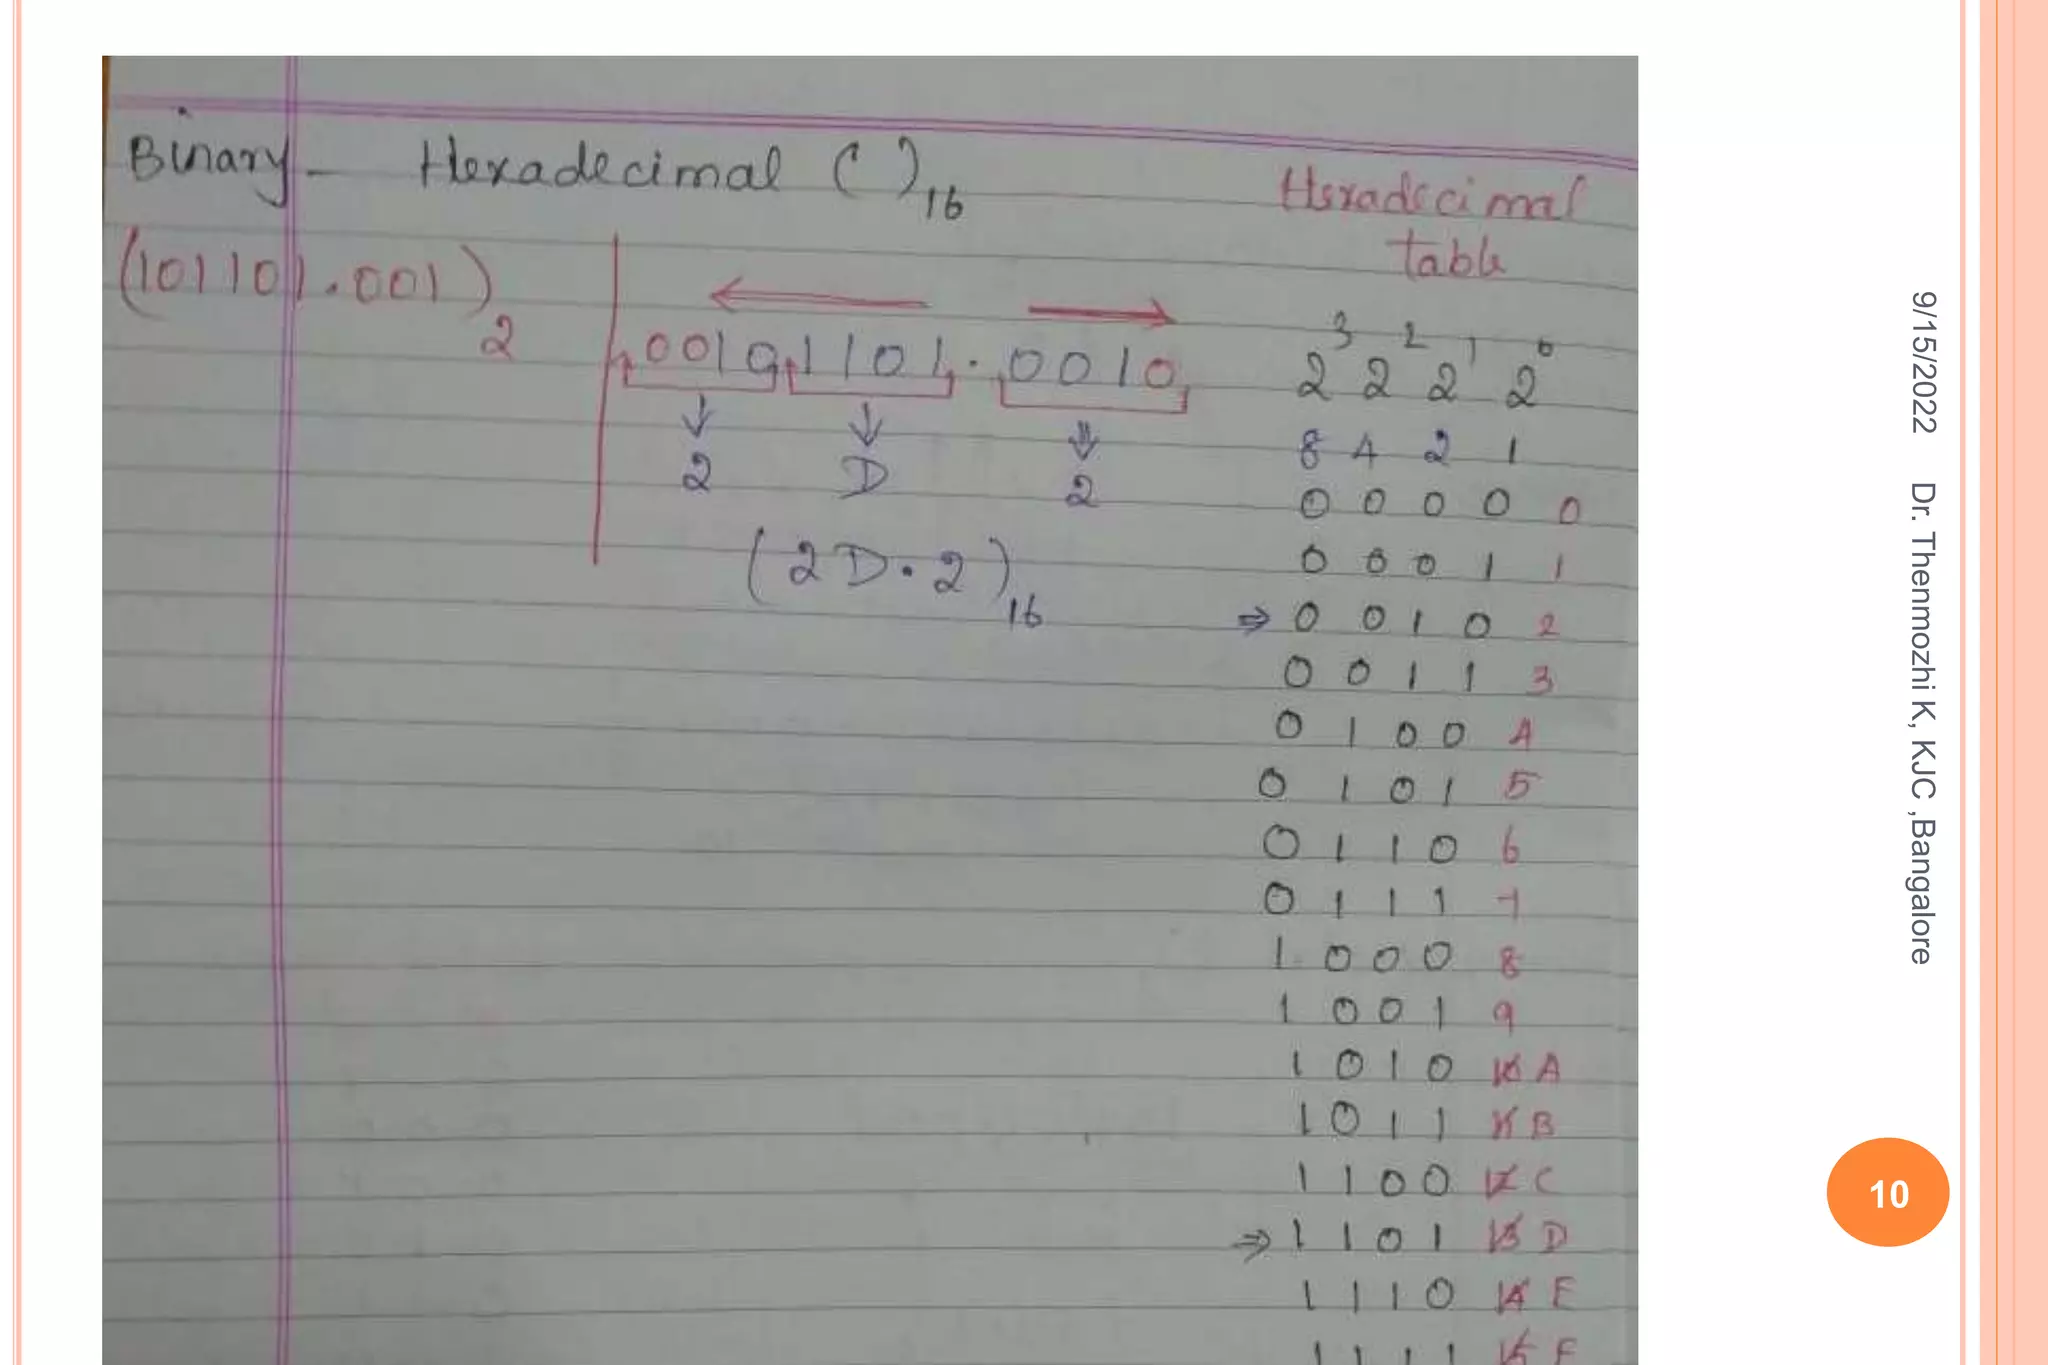 Binary - Hexadecimal ( )16
Hexadecimal
table
(101101.001)2
0010 1101 . 0010
2 D 2
(2D.2)16
2^3 2^2 2^1 2^0
8 4 2 1
0 0 0 0 0
0 0 0 1 1
⇒ 0 0 1 0 2
0 0 1 1 3
0 1 0 0 4
0 1 0 1 5
0 1 1 0 6
0 1 1 1 7
1 0 0 0 8
1 0 0 1 9
1 0 1 0 10 A
1 0 1 1 11 B
1 1 0 0 12 C
⇒ 1 1 0 1 13 D
1 1 1 0 14 E
1 1 1 1 15 F
9/15/2022 Dr. Thenmozhi K, KJC ,Bangalore
10